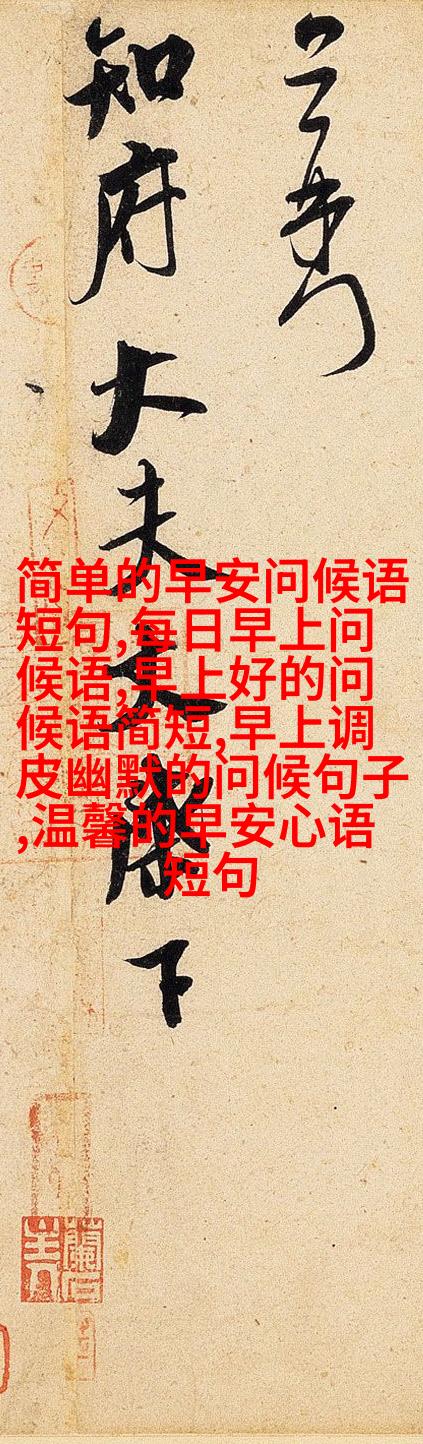 知府大夫丈
下
简单的早安问候语
短句,每日早上问
候语,早上好的问
候语简短,早上调
皮幽默的问候句子
,温馨的早安心语
短句